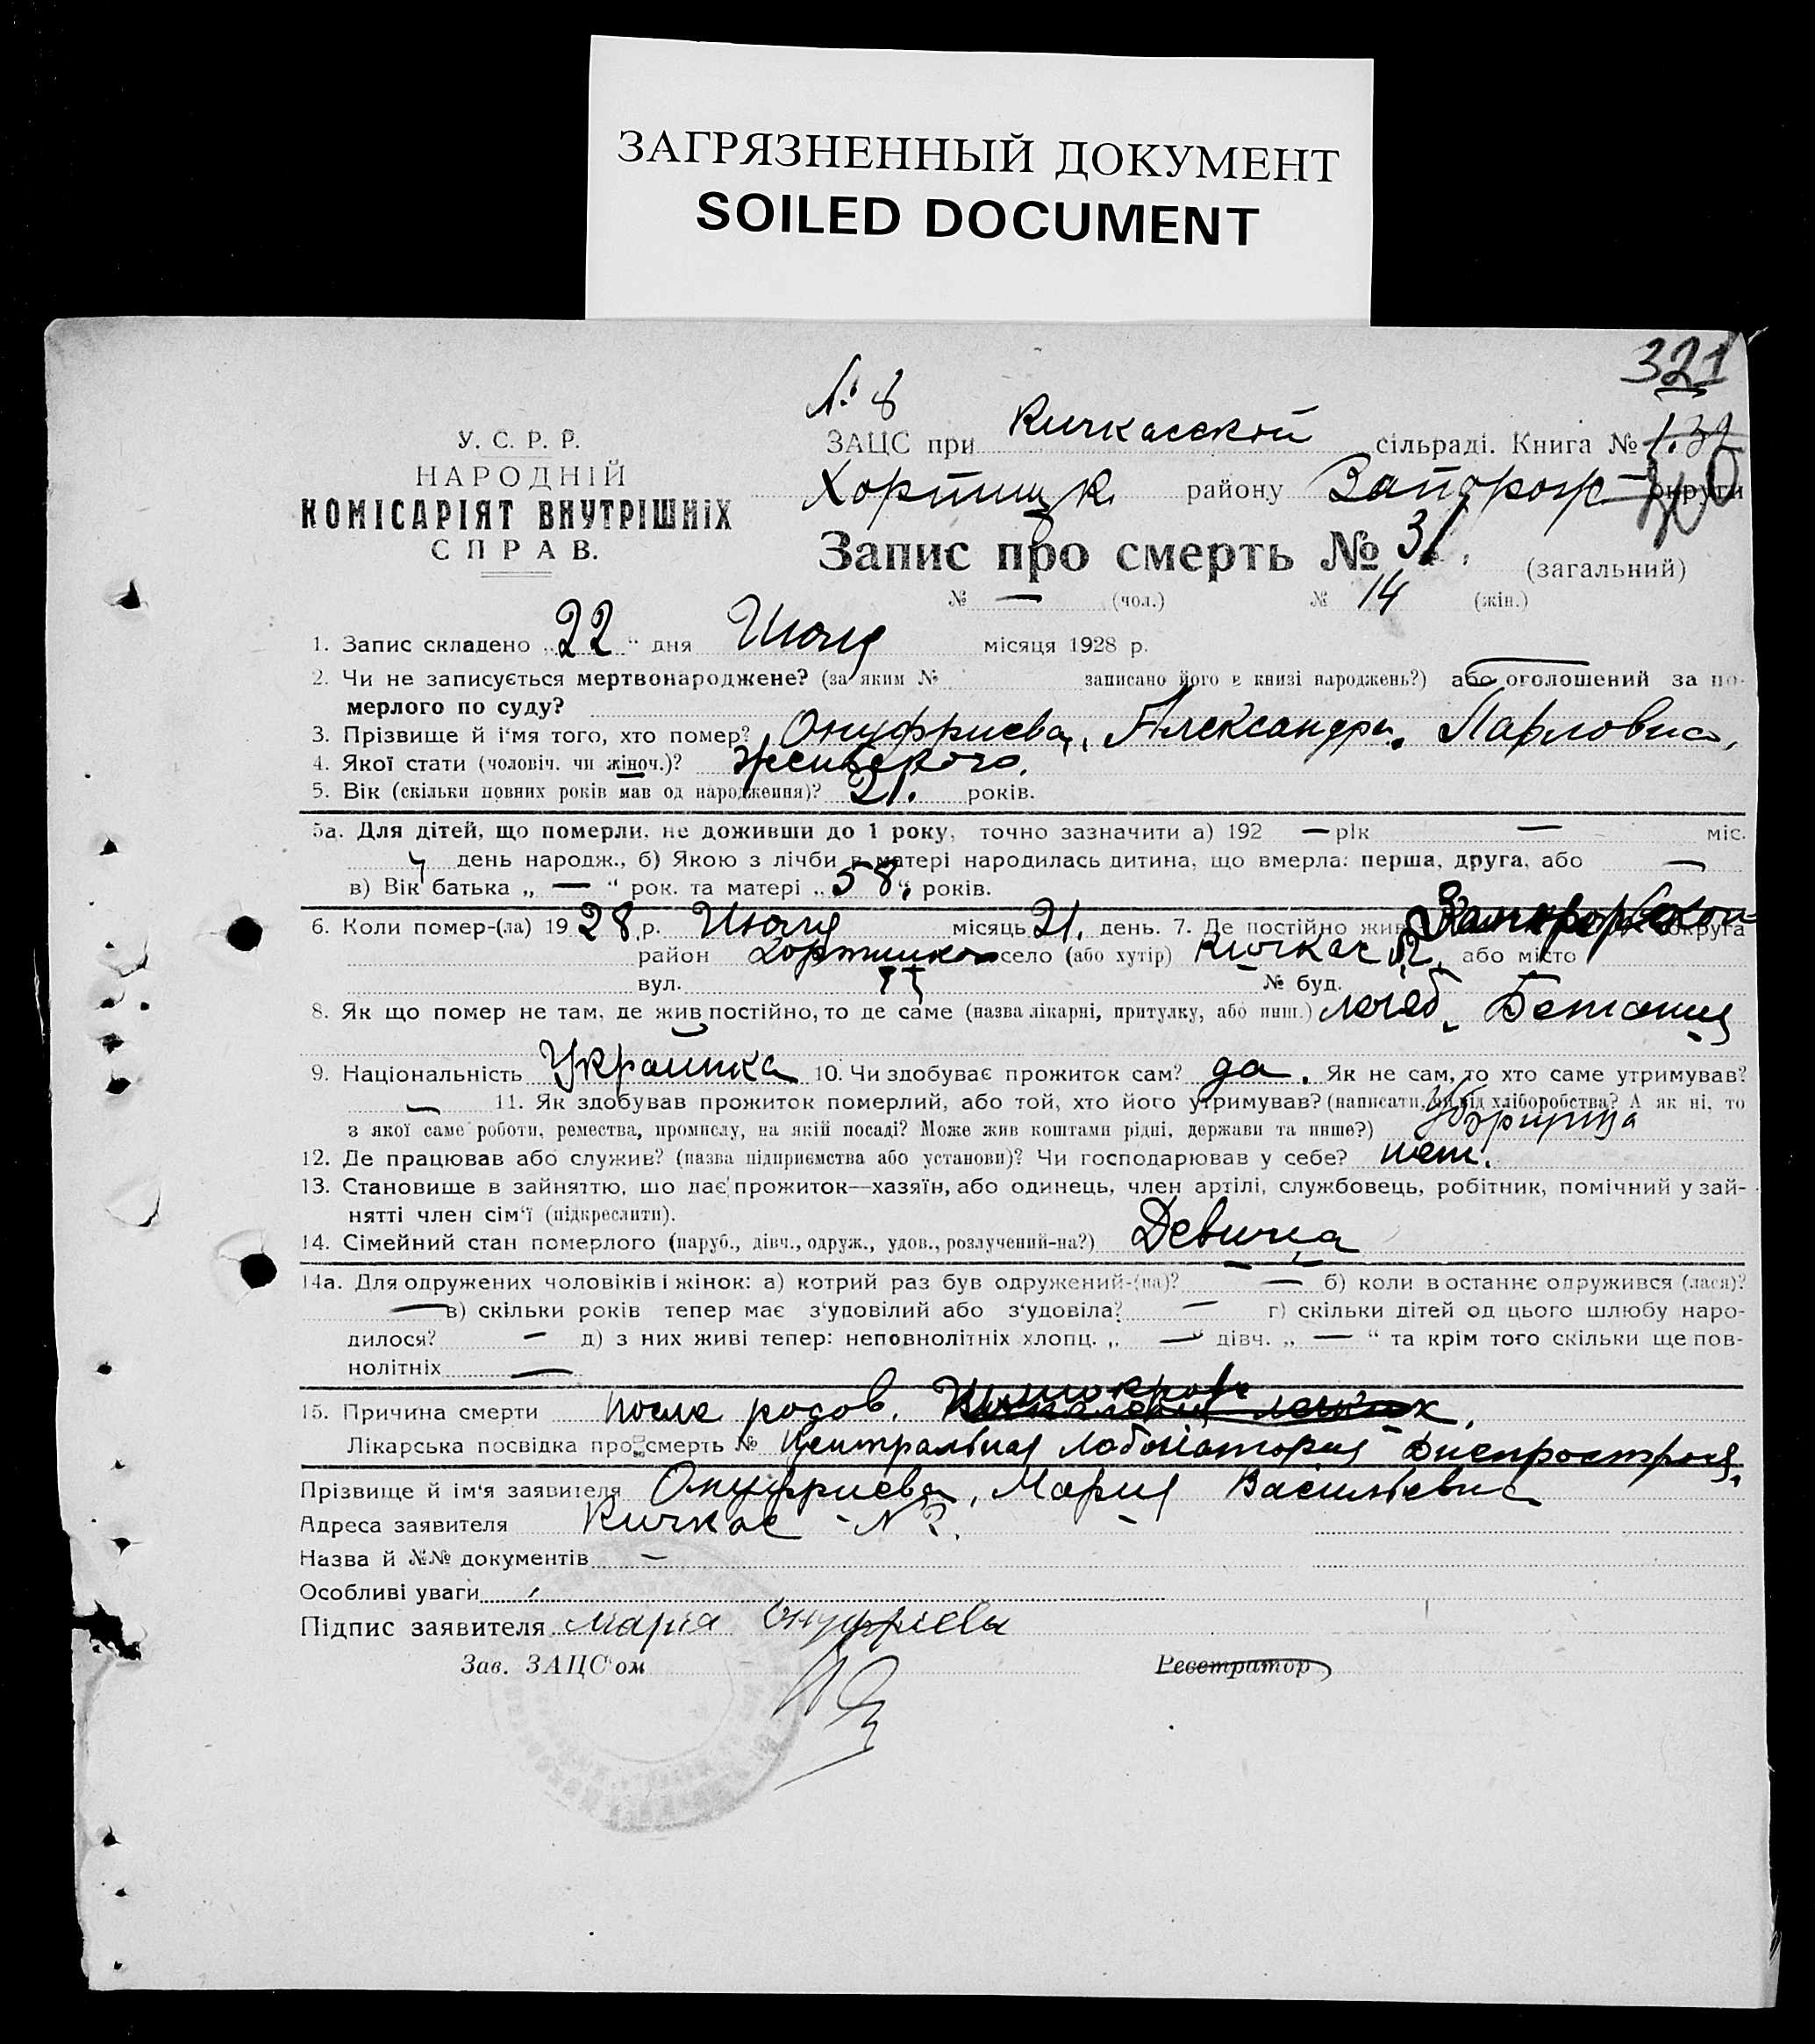 ЗАГРЯЗНЕННЫЙ ДОКУМЕНТ
SOILED DOCUMENT
321
№ 8
У. С. Р. Р.
НАРОДНІЙ
КОМІСАРІЯТ ВНУТРІШНІХ
СПРАВ.
ЗАЦС при Кичкасской сільраді. Книга №
Хортицк района Запорож округи
Запис про смерть № 31. (загальний)
№ — (чол.) № 14 (жін.)
1. Запис складено „22“ дня Июля місяця 1928 р.
2. Чи не записується мертвонароджене? (за яким № записано його в книзі народжень?) або оголошений за по-
мерлого по суду?
3. Прізвище й і'мя того, хто помер? Онуфриева, Александра Павловна,
4. Якої стати (чоловіч. чи жіноч.)? женского.
5. Вік (скільки повних років мав од народження)? 21. років.
5а. Для дітей, що померли, не доживши до 1 року, точно зазначити а) 192 — рік — міс.
день народж., б) Якою з лічби в матері народилась дитина, що вмерла: перша, друга, або —
в) Вік батька „ — “ рок. та матері „58“ років.
6. Коли помер-(ла) 1928 р. Июля місяць 21. день. 7. Де постійно жив округа
район Хортицкого село (або хутір) Кичкас або місто
вул. № буд.
8. Як що помер не там, де жив постійно, то де саме (назва лікарні, притулку, або инш.) лечеб. Бетания
9. Національність Украинка 10. Чи здобуває прожиток сам? да. Як не сам, то хто саме утримував?
— 11. Як здобував прожиток померлий, або той, хто його утримував? (написати, чи від хліборобства? А як ні, то
з якої саме роботи, ремества, промислу, на якій посаді? Може жив коштами рідні, держави та инше?) Уборщица
12. Де працював або служив? (назва підприємства або установи)? Чи господарював у себе? нет.
13. Становище в зайняттю, що дає прожиток—хазяїн, або одинець, член артілі, службовець, робітник, помічний у зай-
нятті член сім'ї (підкреслити).
14. Сімейний стан померлого (паруб., дівч., одруж., удов., розлучений-на?) Девица
14а. Для одружених чоловіків і жінок: а) котрий раз був одружений-(на)? — б) коли в останнє одружився (лася)?
— в) скільки років тепер має з'удовілий або з'удовіла? — г) скільки дітей од цього шлюбу наро-
дилося? — д) з них живі тепер: неповнолітніх хлопц. „ — “ дівч. „ — “ та крім того скільки ще пов-
нолітніх —
15. Причина смерти после родов.
Лікарська посвідка про смерть № Центральная Днепростроя.
Прізвище й ім'я заявителя Онуфриева, Мария Васильевна
Адреса заявителя Кичкас - № 2.
Назва й №№ документів —
Особливі уваги
Підпис заявителя Мария Онуфриева
Зав. ЗАЦС'ом Реєстратор